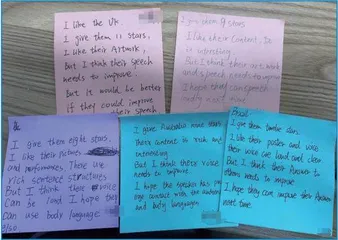 I like the UK.
I give them 11 stars,
I like their Artwork,
But I think their speech
needs to improve.
But it would be better
if they could improve
I give them stars
I like their Content. It is
interesting
But I think their
and speech needs to improve
I hope they can speech
next time
I give them eight stars.
I like their pictures
and performances. There are
rich sentence structures
But I think their voice
Can be loud I hope they
can use body language.
I give Australia nine stars
Their content is rich and
interesting
But I think their voice
needs to improve.
I hope the speaker has
eye contact with the audience
and body language.
Brazil
I give them twelve stars.
I like their poster and voice
their voice are loud and clear
But I think their Answer to
them needs to improve
I hope they can improve their Answer
next time.